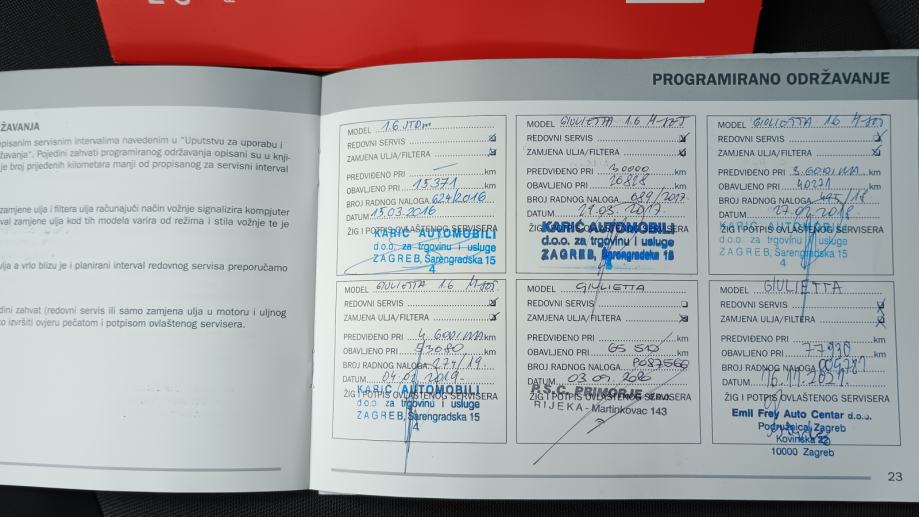 PROGRAMIRANO ODRŽAVANJE
ŽAVANJA
opisanim servisnim intervalima navedenim u "Uputstvu za uporabu i
žavanja". Pojedini zahvati programiranog održavanja opisani su u knji-
je broj prijeđenih kilometara manji od propisanog za servisni interval
zamjene ulja i filtera ulja računajući način vožnje signalizira kompjuter
val zamjene ulja kod tih modela varira od režima i stila vožnje te je
ulja a vrlo blizu je i planirani interval redovnog servisa preporučamo
dini zahvat (redovni servis ili samo zamjena ulja u motoru i uljnog
ko izvršiti ovjeru pečatom i potpisom ovlaštenog servisera.
MODEL 1.6 JTDm
REDOVNI SERVIS
ZAMJENA ULJA/FILTERA
PREDVIĐENO PRI km
OBAVLJENO PRI 15371 km
BROJ RADNOG NALOGA 624/2016
DATUM 15.03.2016
ŽIG I POTPIS OVLAŠTENOG SERVISERA
KARIĆ AUTOMOBILI
d.o.o. za trgovinu i usluge
ZAGREB, Šarengradska 15
4
MODEL GIULIETTA 1.6
REDOVNI SERVIS
ZAMJENA ULJA/FILTERA
PREDVIĐENO PRI 30000 km
OBAVLJENO PRI km
BROJ RADNOG NALOGA
DATUM 21.03.2017
ŽIG I POTPIS OVLAŠTENOG SERVISERA
KARIĆ AUTOMOBILI
d.o.o. za trgovinu i usluge
ZAGREB, Šarengradska 15
MODEL GIULIETTA 1.6
REDOVNI SERVIS
ZAMJENA ULJA/FILTERA
PREDVIĐENO PRI 3. GODINA km
OBAVLJENO PRI 40271 km
BROJ RADNOG NALOGA
DATUM 27.02.2018
ŽIG I POTPIS OVLAŠTENOG SERVISERA
KARIĆ AUTOMOBILI
d.o.o. za trgovinu i usluge
ZAGREB, Šarengradska 15
4
MODEL GIULIETTA 1.6
REDOVNI SERVIS
ZAMJENA ULJA/FILTERA
PREDVIĐENO PRI 4. GODINA km
OBAVLJENO PRI 53080 km
BROJ RADNOG NALOGA 274/19
DATUM 04.01.2019
ŽIG I POTPIS OVLAŠTENOG SERVISERA
KARIĆ AUTOMOBILI
d.o.o. za trgovinu i usluge
ZAGREB, Šarengradska 15
4
MODEL GIULIETTA
REDOVNI SERVIS
ZAMJENA ULJA/FILTERA
PREDVIĐENO PRI km
OBAVLJENO PRI 65 512 km
BROJ RADNOG NALOGA
DATUM 03 09 2020
ŽIG I POTPIS OVLAŠTENOG SERVISERA
P.S.C. PRIMORJE
RIJEKA - Martinkovac 143
MODEL GIULIETTA
REDOVNI SERVIS
ZAMJENA ULJA/FILTERA
PREDVIĐENO PRI km
OBAVLJENO PRI km
BROJ RADNOG NALOGA
DATUM 16.11.2021.
ŽIG I POTPIS OVLAŠTENOG SERVISERA
Emil Frey Auto Centar d.o.o.
Podružnica Zagreb
Kovinska 22
10000 Zagreb
23